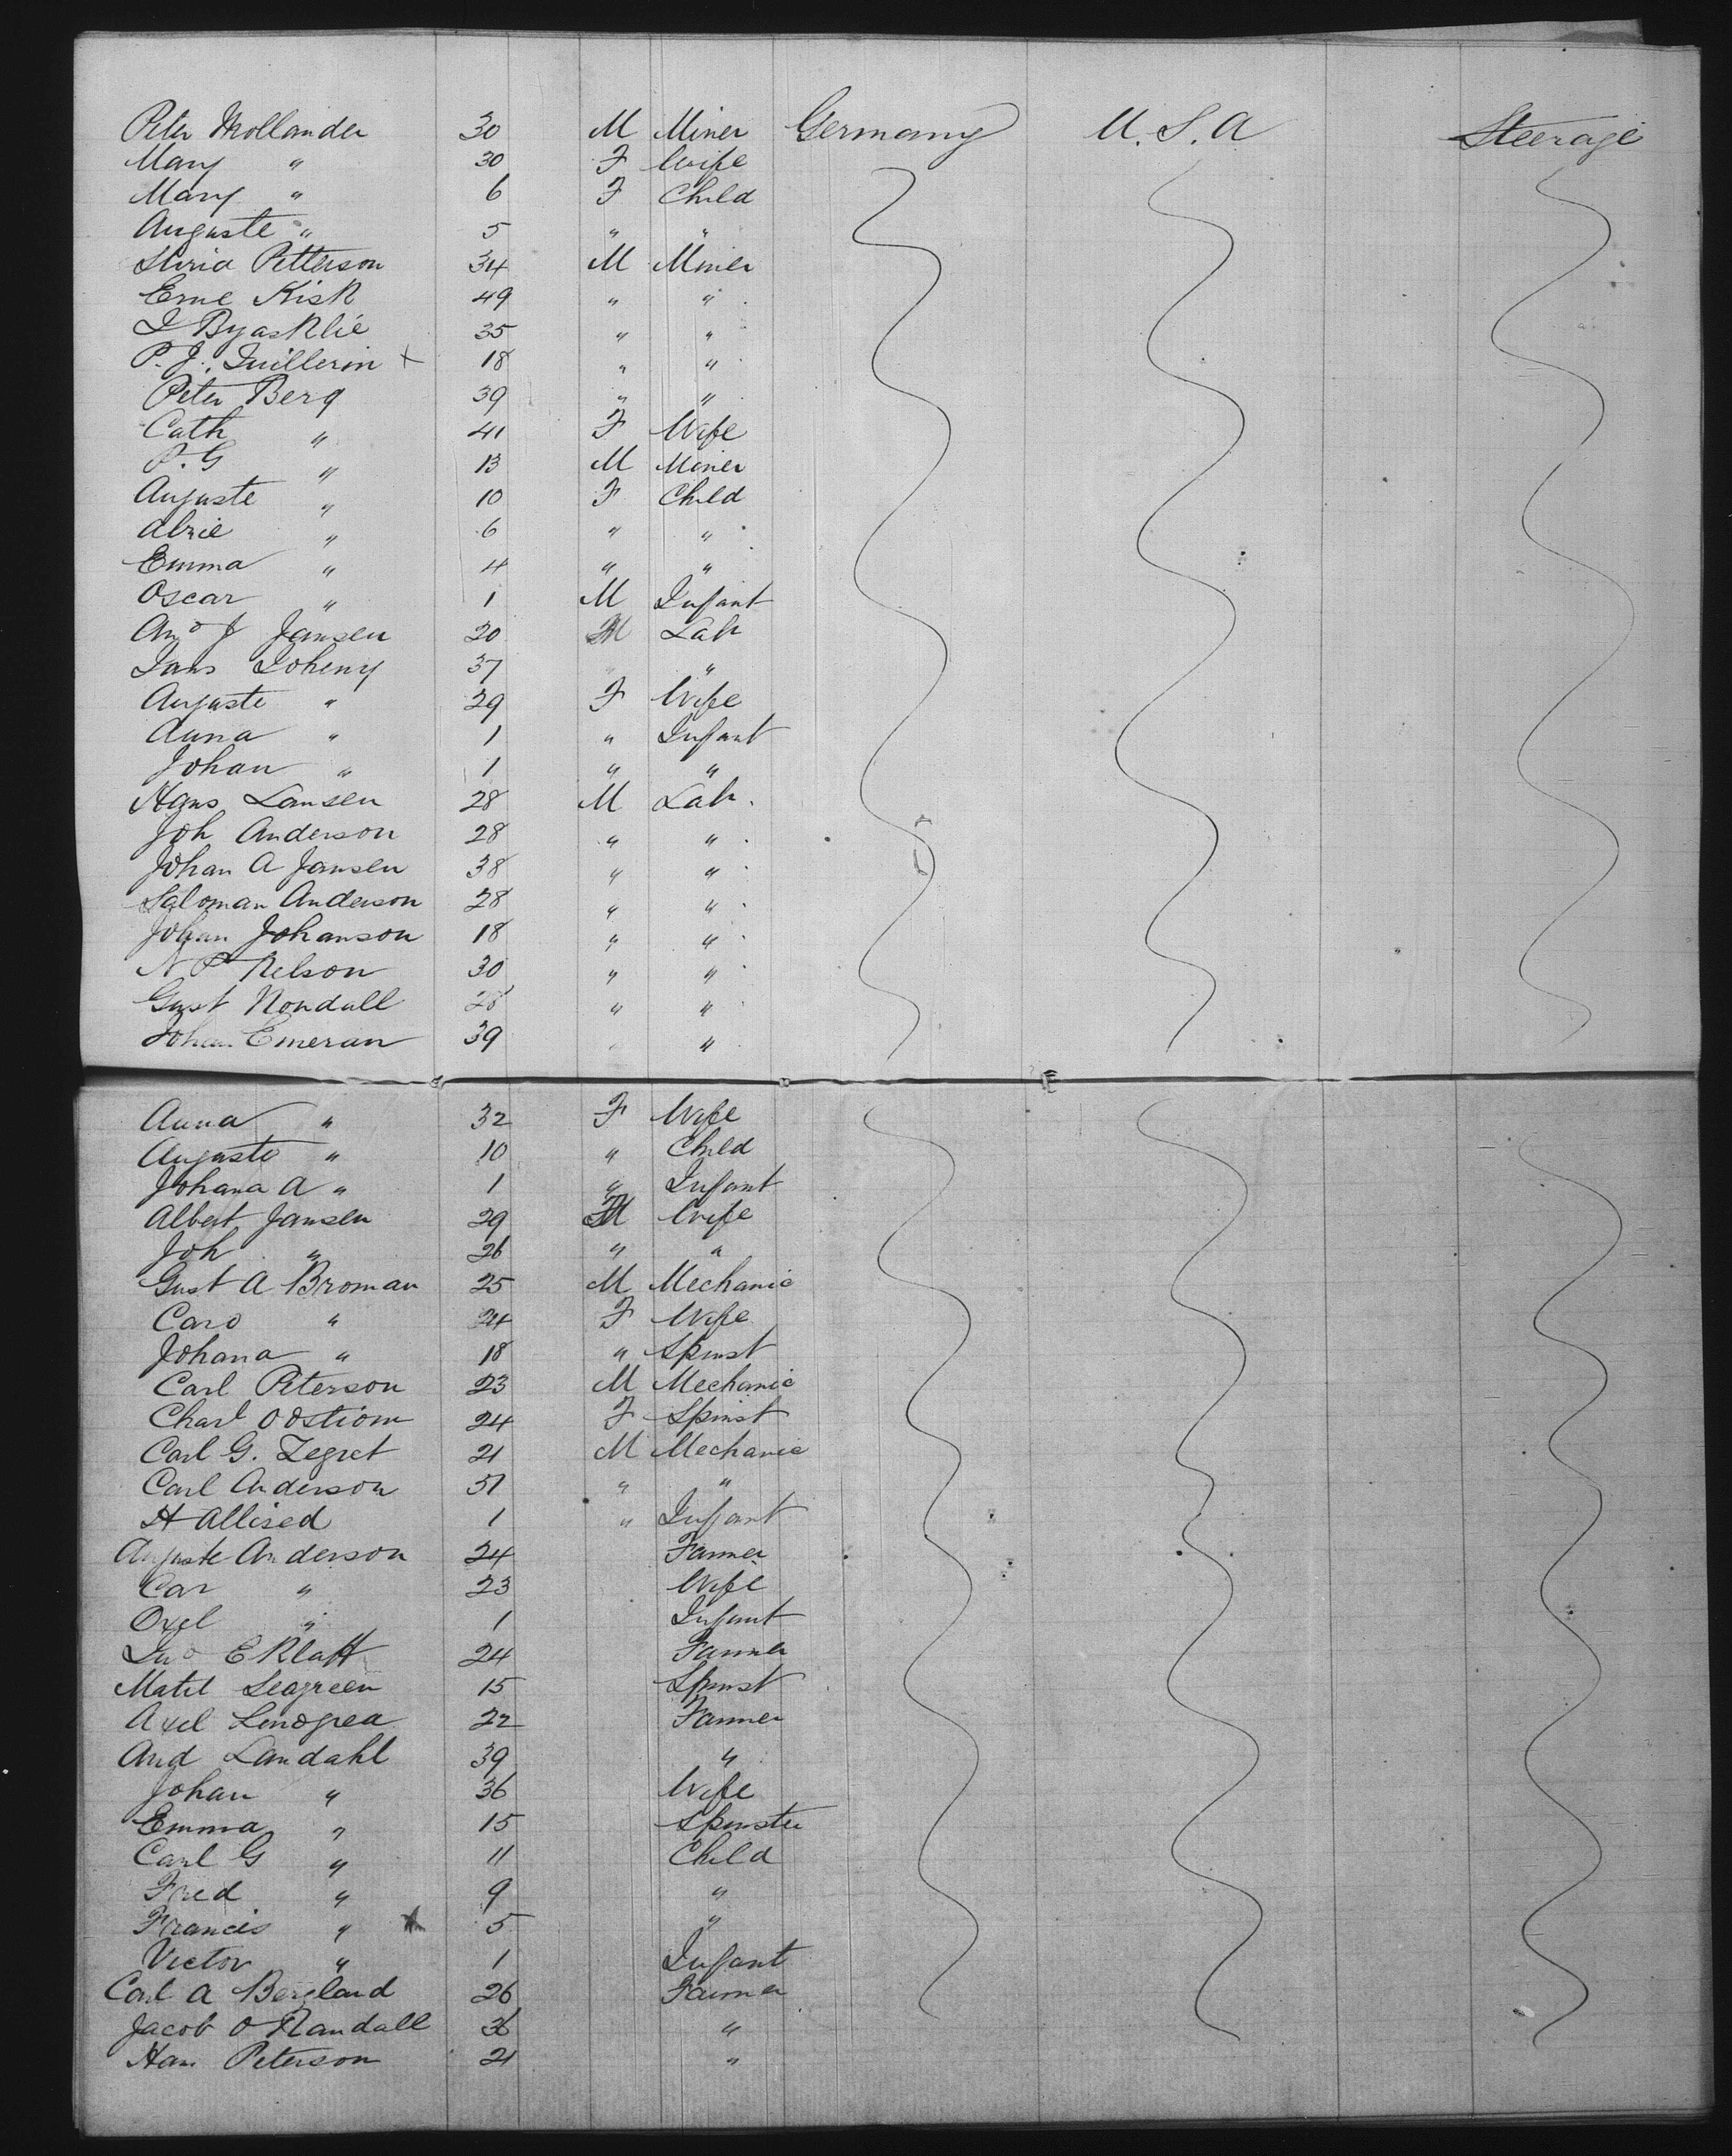 Peter Mollander 30 M Miner Germany U.S.A Steerage
Mary " 30 F Wife
Mary " 6 F Child
Auguste " 5 " "
Petterson 34 M Miner
Erne Kisk 49 " "
35 " "
P. J. Guillerin + 18 " "
Peter Berg 39 " "
Cath " 41 F Wife
P. G " 13 M Miner
Auguste " 10 F Child
" 6 " "
Emma " 4 " "
Oscar " 1 M Infant
And J Jansen 20 M Lab
37 "
Auguste " 29 F Wife
Anna " 1 " Infant
Johan " 1 " "
Hans Lansen 28 M Lab.
Joh Anderson 28 " "
Johan A Jansen 38 " "
Saloman Anderson 28 " "
Johan Johanson 18 " "
N P Nelson 30 " "
Gust Nondall 28 " "
Johan Emeran 39 "
Anna " 32 F Wife
Auguste " 10 " Child
Johana A " 1 " Infant
Albert Jansen 29 Wife
Joh " 26 " "
Gust A Broman 25 M Mechanic
Caro " 24 F Wife
Johana " 18 " Spinst
Carl Peterson 23 M Mechanic
Charl 24 F Spinst
Carl G. Zegret 21 M Mechanic
Carl Anderson 31 " "
H Allised 1 " Infant
Auguste Anderson 24 Farmer
Car " 23 Wife
Oxel " 1 Infant
24 Farmer
Matil Seagreen 15 Spinst
Axel 22 Farmer
And Landahl 39 "
Johan " 36 Wife
Emma " 15 Spinster
Carl G " 11 Child
Fred " 9 "
Francis " x 5 "
Victor " 1 Infant
Carl A Bergland 26 Farmer
Jacob O Randall 36 "
Han Peterson 21 "